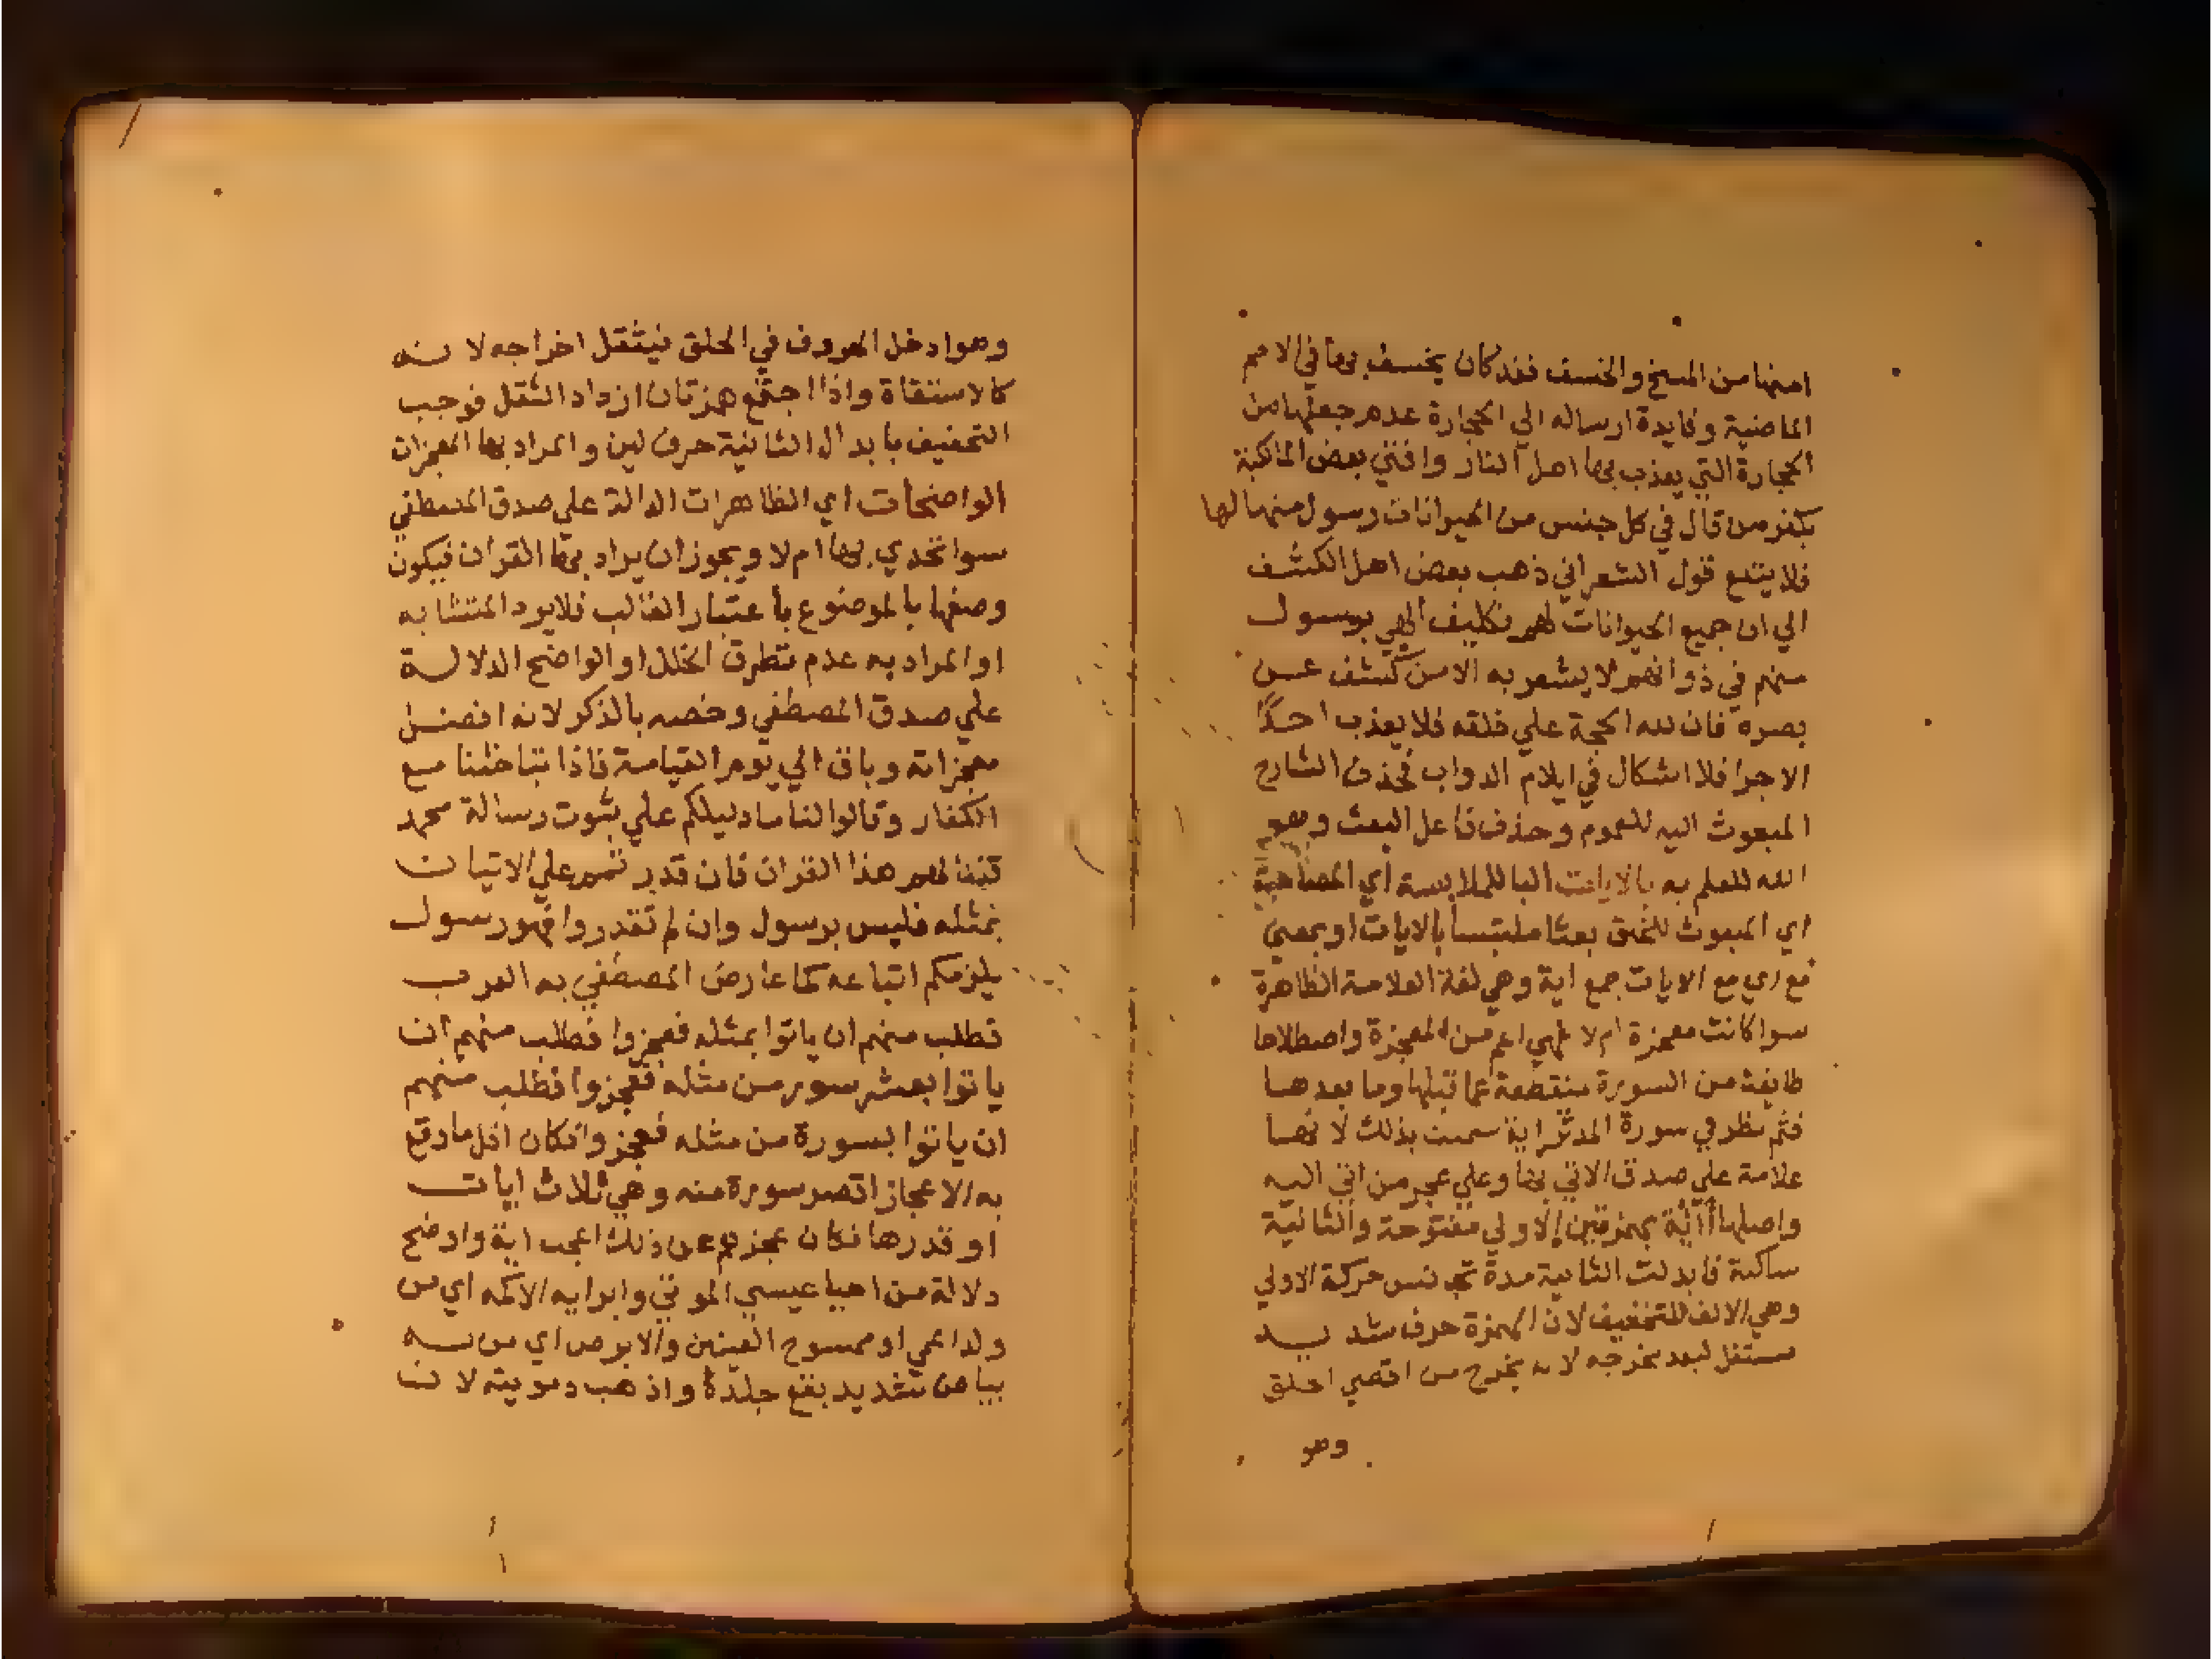 امنها من المسخ والخسف فقد كان يخسف بها في الامم
الماضية وفايدة ارساله الي الحجارة عدم جعلها من
الحجارة التي يعذب بها اهل النار وافتي بعض المالكية
بكفر من قال في كل جنس من الحيوانات رسول منها لها
فلا يتبع قول الشعراني ذهب بعض اهل الكشف
الي ان جميع الحيوانات لهم تكليف الهي برسول
منهم في ذواتهم لا يشعر به الا من كشف عن
بصره فان لله الحجة علي خلقه فلا يعذب احدًا
الا جزا فلا اشكال في ايلام الدواب فحذف الشارح
المبعوث اليه للعموم وحذف فاعل البعث وهو
الله للعلم به بالايات البا للملابسة اي المصاحبة
اي المبعوث للخلق بعثا ملتبسا بالايات او بمعني
مع اي مع الايات جمع اية وهي لغة العلامة الظاهرة
سوا كانت معجزة ام لا فهي اعم من المعجزة واصطلاحا
طايفة من السورة منقطعة عما قبلها وما بعدها
فثم نظر في سورة المدثر اية سميت بذلك لانها
علامة علي صدق الاتي بها وعلي عجز من اتي اليه
واصلها أأية بهمزتين الاولي مفتوحة والثانية
ساكنة فابدلت الثانية مدة تجانس حركة الاولي
وهي الالف للتخفيف لان الهمزة حرف شديد
مستفل لبعد مخرجه لانه يخرج من اقصي الحلق
وهو
وهو ادخل الحروف في الحلق فيثقل اخراجه لانه
كالاستقاة واذا اجتمع همزتان ازداد الثقل فوجب
التخفيف بابدال الثانية حرف لين والمراد بها المعجزات
الواضحات اي الظاهرات الدالة علي صدق المصطفي
سوا تحدي بها ام لا ويجوز ان يراد بها القران فيكون
وصفها بالموضوع باعتبار الغالب فلا يرد المتشابه
او المراد به عدم تطرق الخلل او الواضح الدلالة
علي صدق المصطفي وخصه بالذكر لانه افضل
معجزاته وباق الي يوم القيامة فاذا تباحثنا مع
الكفار وقالوا لنا ما دليلكم علي ثبوت رسالة محمد
قلنا لهم هذا القران فان قدرتم علي الاتيان
بمثله فليس برسول وان لم تقدروا فهو رسول
يلزمكم اتباعه كما عارض المصطفي به العرب
فطلب منهم ان ياتوا بمثله فعجزوا فطلب منهم ان
ياتوا بعشر سور من مثله فعجزوا فطلب منهم
ان ياتوا بسورة من مثله فعجزوا فكان اقل ما وقع
به الاعجاز اقصر سورة منه وهي ثلاث ايات
او قدرها فكان عجزهم عن ذلك اعجب اية واوضح
دلالة من احيا عيسي الموتي وابرايه الاكمه اي من
ولد اعمي او ممسوح العينين والابرص اي من به
بياض شديد بقع جلده واذهب دمويته لان